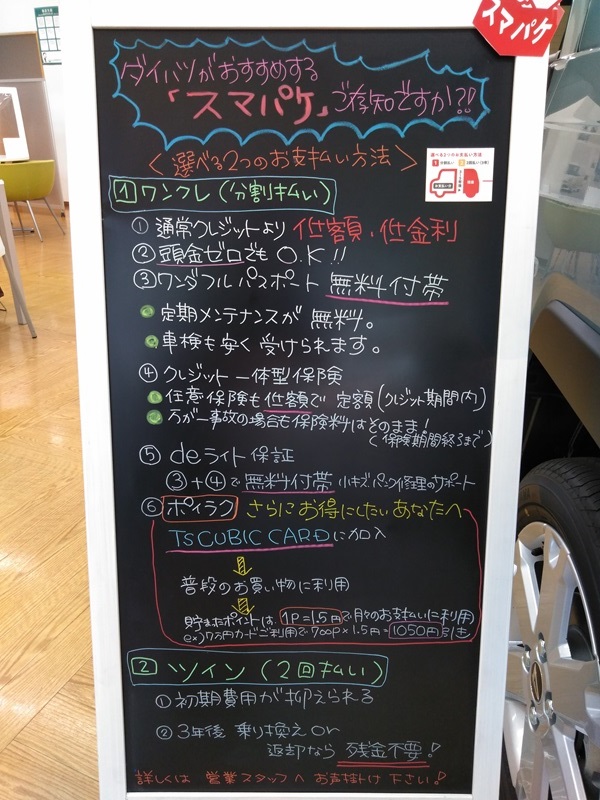 スマパケ
ダイハツがおすすめする
「スマパケ」ご存知ですか?!
<選べる2つのお支払い方法>
1 ワンクレ(分割払い)
① 通常クレジットより 低額、低金利
② 頭金ゼロでも O.K!!
③ ワンダフルパスポート 無料付帯
定期メンテナンスが 無料。
車検も安く受けられます。
④ クレジット一体型保険
任意保険も低額で 定額(クレジット期間内)
万が一事故の場合も保険料はそのまま!
(保険期間終了まで)
⑤ deライト保証
③+④で無料付帯 小キズ・パンク修理のサポート
⑥ ポイラク さらにお得にしたいあなたへ
TS CUBIC CARDに加入
普段のお買い物に利用
貯まったポイントは、1P=1.5円で月々のお支払いに利用
ex)7万円カードご利用で700P×1.5円=1050円引き
2 ツイン(2回払い)
① 初期費用が抑えられる
② 3年後 乗り換え or
返却なら 残金不要!
詳しくは 営業スタッフへ お声掛け下さい!